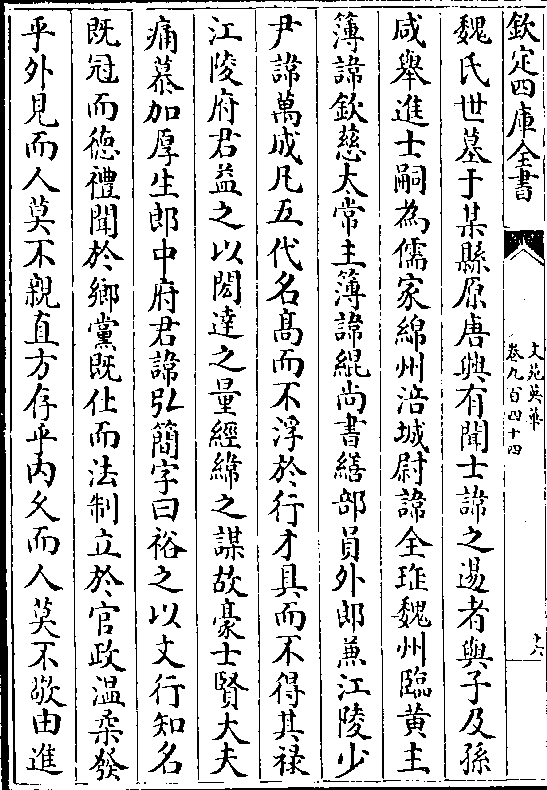 欽定四庫全書
文苑英華
卷九百四十四
十六
魏氏世墓于某縣原唐興有聞士諱之逿者與子及孫
咸舉進士嗣為儒家綿州涪城尉諱全珄魏州臨黃主
簿諱欽慈大常主簿諱緄尚書繕部員外郎兼江陵少
尹諱萬成凡五代名髙而不浮於行才具而不得其祿
江陵府君益之以閎達之量經緯之謀故豪士賢大夫
痛慕加厚生郎中府君諱弘簡字曰裕之以文行知名
既冠而德禮聞於鄉黨既仕而法制立於官政温柔發
乎外見而人莫不親直方存乎内久而人莫不敬由進